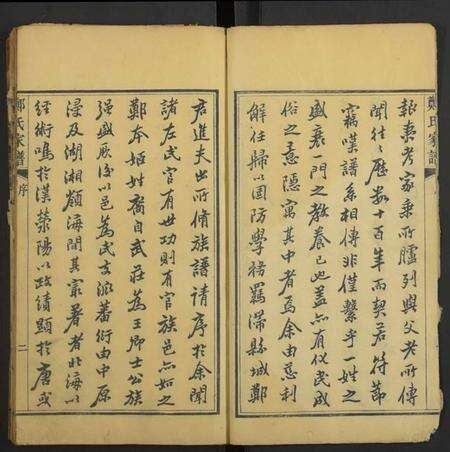 鄭氏家譜
報粟考家乘所臚列與父老所傳
聞往往歷數十百年而契若符節
竊嘆譜系相傳非僅繫乎一姓之
盛衰一門之教養已也蓋亦有代民成
俗之意隱寓其中者焉余由慈利
解任歸以團防學務羈滯縣城鄭
君進夫出所脩族譜請序於余聞
諸左氏官有世功則有官族邑亦如之
鄭本姬姓裔自武莊為王卿士公族
强盛厥後以邑為氏支派蕃衍由中原
浸及湖湘嶺海間其最著者北海以
經術鳴於漢滎陽以政績顯於唐或
鄭氏家譜
序
二